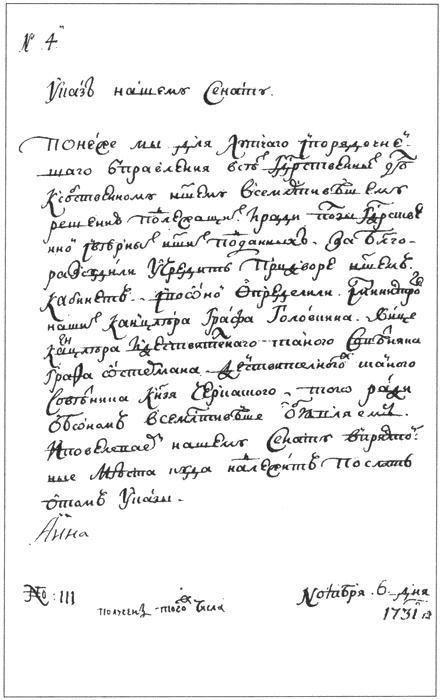 N 4
Указъ нашему Сенату.
Понеже мы для лутчаго и порядочнѣ
шаго управления всѣх Гдрственных дѣл
к собственному нашему всемлтивѣшему
решению подлежащих и ради ползы Гдрстве
нно и вѣрных нших подданных. За благо
разсудили учредить при дворе ншемъ
Кабинетъ. и во оно опредѣлили. из министров
наших канцлера графа Головкина. Вице
канцлера и дѣствителнаго таиного Совѣтника
Графа Остермана. дѣствителного таиного
Совѣтника князя Черкаского. того ради
о всемилтивѣше обявляемъ.
И повелеваем нашему Сенату в
ные Мѣста куда надлежитъ послать
о томъ Указы.
Анна
No: III
получен того числа
Ноября. 6. дня
1731 г